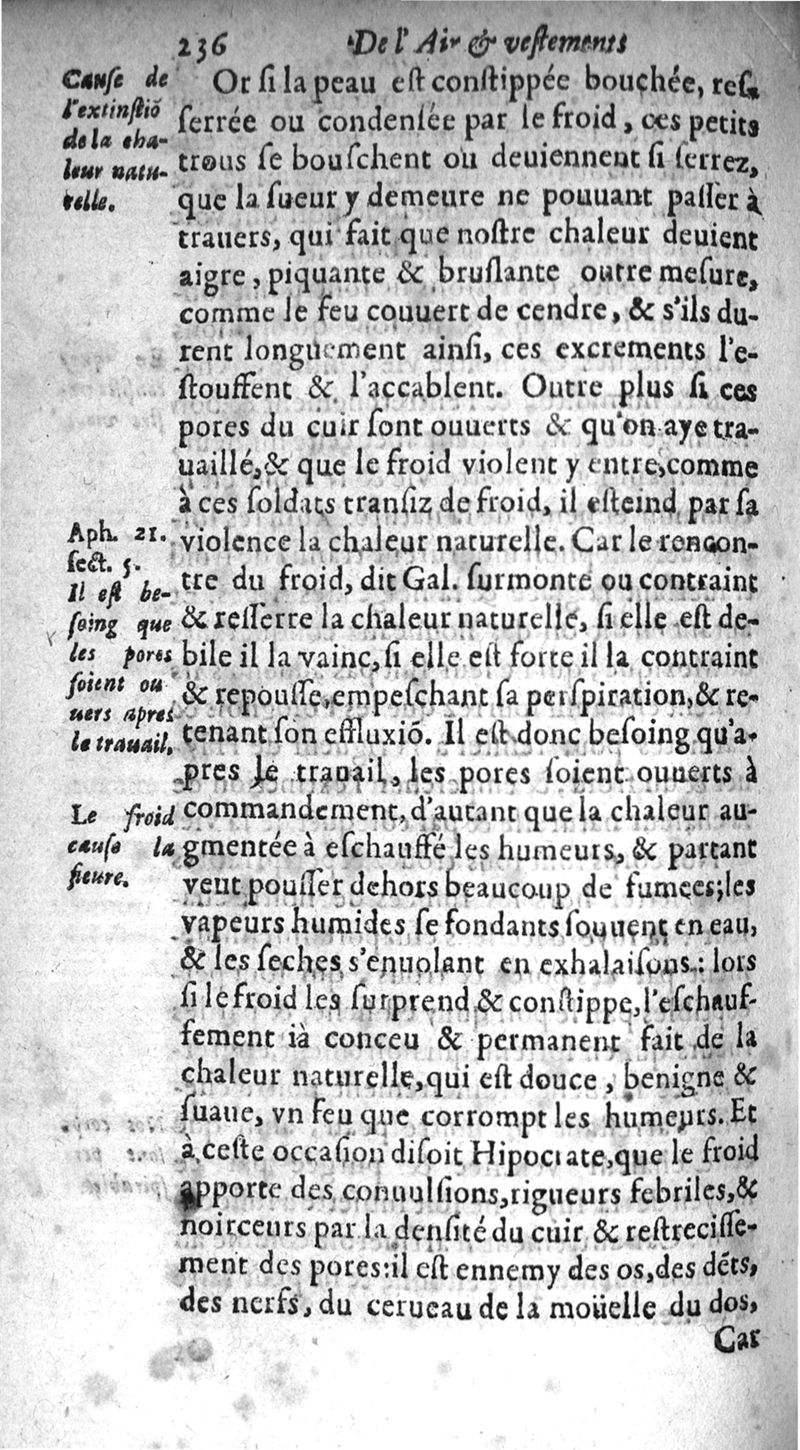 236 De l'Air & veſtements
Cauſe de
l'extinſtiō
de la cha-
leur natu-
relle.
Or ſi la peau eſt conſtippée bouchée, reſ-
ſerrée ou condenſée par le froid, ces petits
trous ſe bouſchent ou deuiennent ſi ſerrez,
que la ſueur y demeure ne pouuant paſſer à
trauers, qui fait que noſtre chaleur deuient
aigre, piquante & bruſlante outre meſure,
comme le feu couuert de cendre, & s'ils du-
rent longuement ainſi, ces excrements l'e-
ſtouffent & l'accablent. Outre plus ſi ces
pores du cuir ſont ouuerts & qu'on aye tra-
uaillé, & que le froid violent y entre, comme
à ces ſoldats tranſiz de froid, il eſteind par ſa
violence la chaleur naturelle. Car le rencon-
tre du froid, dit Gal. ſurmonte ou contraint
& reſſerre la chaleur naturelle, ſi elle eſt de-
bile il la vainc, ſi elle eſt forte il la contraint
& repouſſe, empeſchant ſa perſpiration, & re-
tenant ſon effluxiō. Il eſt donc beſoing qu'a-
pres le trauail, les pores ſoient ouuerts à
commandement, d'autant que la chaleur au-
gmentée à eſchauffé les humeurs, & partant
veut pouſſer dehors beaucoup de fumées; les
vapeurs humides ſe fondants ſoyuent en eau,
& les ſeches s'enuolant en exhalaiſons: lors
ſi le froid les ſurprend & conſtippe, l'eſchauf-
fement ià conceu & permanent fait de la
chaleur naturelle, qui eſt douce, benigne &
ſuaue, vn feu que corrompt les humeurs. Et
à ceſte occaſion diſoit Hipocrate, que le froid
apporte des conuulſions, rigueurs febriles, &
noirceurs par la denſité du cuir & reſtreciſſe-
ment des pores: il eſt ennemy des os, des dēts,
des nerfs, du cerueau de la moüelle du dos,
Car
Aph. 21.
ſect. 5.
Il eſt be-
ſoing que
les pores
ſoient ou
uers apres
le trauail.
Le froid
cauſe la
fieure.